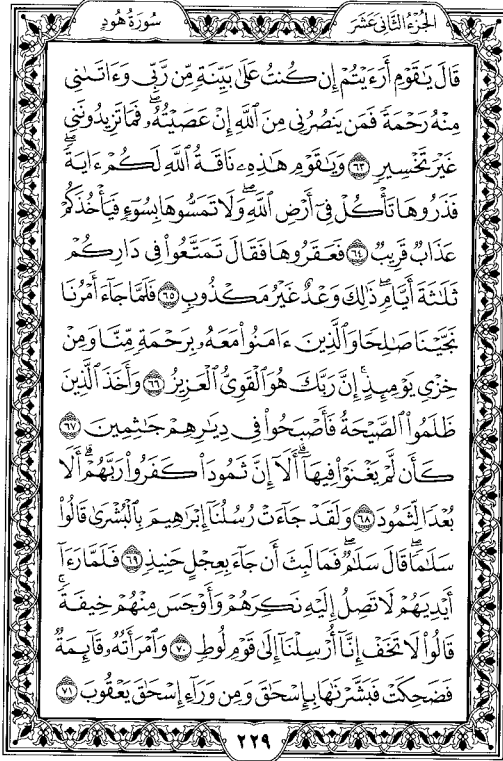 سُورَةُ هُودٍ
الجُزْءُ الثَّانِي عَشَرَ
قَالَ يَٰقَوْمِ أَرَءَيْتُمْ إِن كُنتُ عَلَىٰ بَيِّنَةٍ مِّن رَّبِّي وَءَاتَىٰنِي
مِنْهُ رَحْمَةً فَمَن يَنصُرُنِي مِنَ ٱللَّهِ إِنْ عَصَيْتُهُۥۖ فَمَا تَزِيدُونَنِي
غَيْرَ تَخْسِيرٍ ٦٣ وَيَٰقَوْمِ هَٰذِهِۦ نَاقَةُ ٱللَّهِ لَكُمْ ءَايَةًۖ
فَذَرُوهَا تَأْكُلْ فِيٓ أَرْضِ ٱللَّهِۖ وَلَا تَمَسُّوهَا بِسُوٓءٍ فَيَأْخُذَكُمْ
عَذَابٌ قَرِيبٌ ٦٤ فَعَقَرُوهَا فَقَالَ تَمَتَّعُوا۟ فِي دَارِكُمْ
ثَلَٰثَةَ أَيَّامٍۖ ذَٰلِكَ وَعْدٌ غَيْرُ مَكْذُوبٍ ٦٥ فَلَمَّا جَآءَ أَمْرُنَا
نَجَّيْنَا صَٰلِحًا وَٱلَّذِينَ ءَامَنُوا۟ مَعَهُۥ بِرَحْمَةٍ مِّنَّا وَمِنْ
خِزْيِ يَوْمِئِذٍۚ إِنَّ رَبَّكَ هُوَ ٱلْقَوِيُّ ٱلْعَزِيزُ ٦٦ وَأَخَذَ ٱلَّذِينَ
ظَلَمُوا۟ ٱلصَّيْحَةُ فَأَصْبَحُوا۟ فِي دِيَٰرِهِمْ جَٰثِمِينَ ٦٧
كَأَن لَّمْ يَغْنَوْا۟ فِيهَآۗ أَلَآ إِنَّ ثَمُودَا۟ كَفَرُوا۟ رَبَّهُمْۗ أَلَا
بُعْدًا لِّثَمُودَ ٦٨ وَلَقَدْ جَآءَتْ رُسُلُنَآ إِبْرَٰهِيمَ بِٱلْبُشْرَىٰ قَالُوا۟
سَلَٰمًاۖ قَالَ سَلَٰمٌۖ فَمَا لَبِثَ أَن جَآءَ بِعِجْلٍ حَنِيذٍ ٦٩ فَلَمَّا رَءَآ
أَيْدِيَهُمْ لَا تَصِلُ إِلَيْهِ نَكِرَهُمْ وَأَوْجَسَ مِنْهُمْ خِيفَةًۚ
قَالُوا۟ لَا تَخَفْ إِنَّآ أُرْسِلْنَآ إِلَىٰ قَوْمِ لُوطٍ ٧٠ وَٱمْرَأَتُهُۥ قَآئِمَةٌ
فَضَحِكَتْ فَبَشَّرْنَٰهَا بِإِسْحَٰقَ وَمِن وَرَآءِ إِسْحَٰقَ يَعْقُوبَ ٧١
٢٢٩